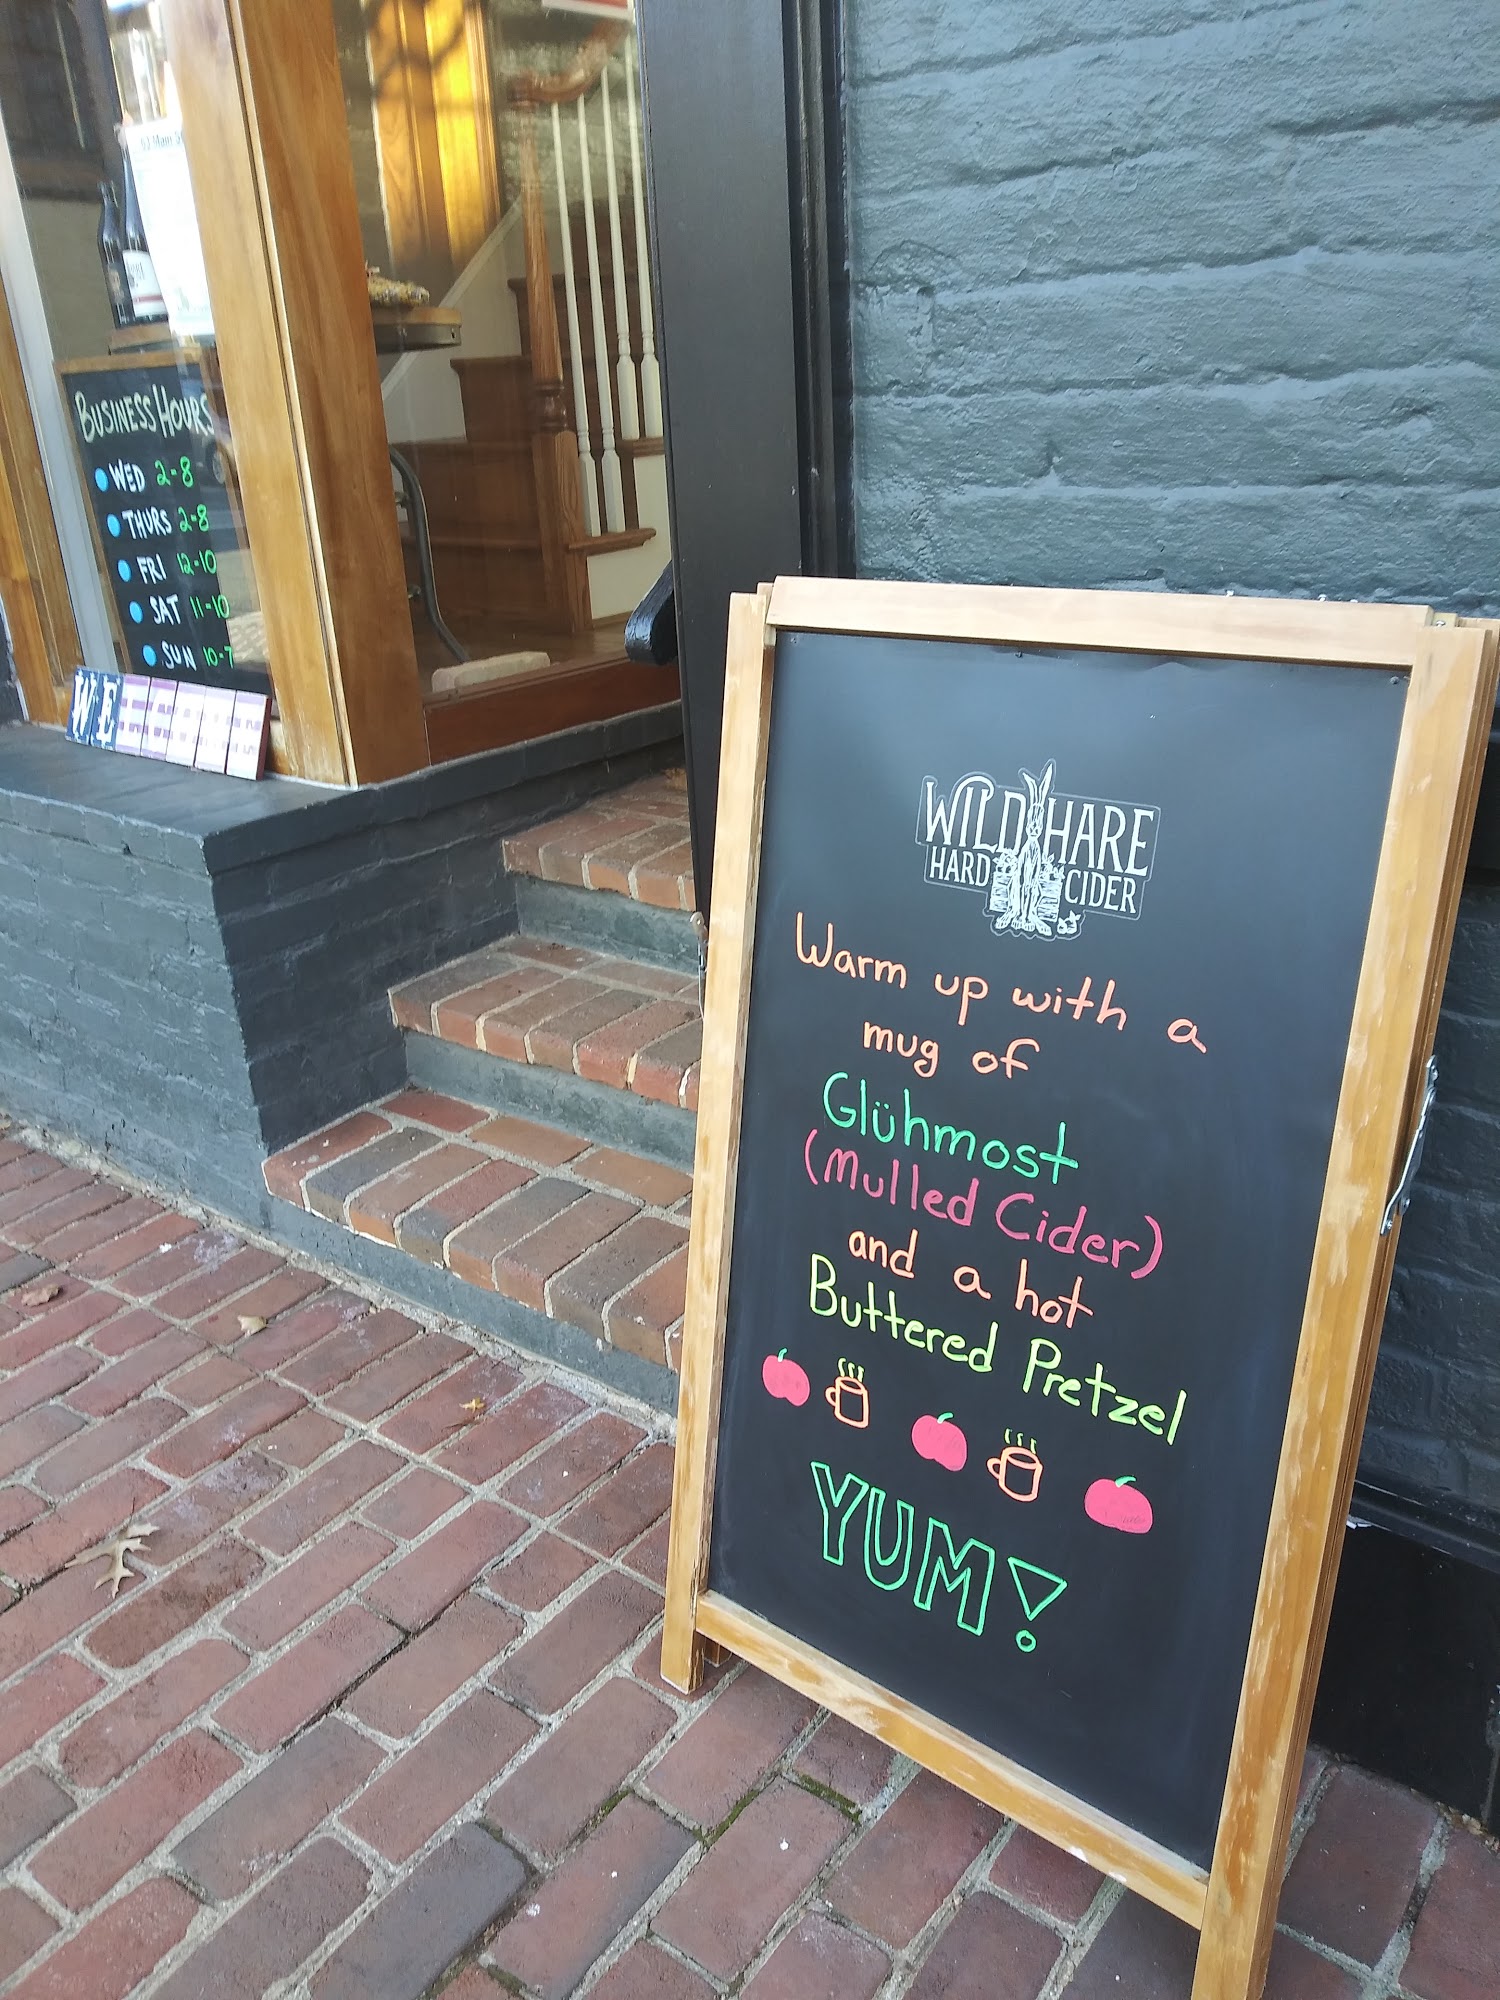 BUSINESS HOURS
WED 2-8
THURS 2-8
FRI 12-10
SAT 11-10
SUN 10-7
WE
WILD HARE
HARD CIDER
Warm up with a
mug of
Glühmost
(Mulled Cider)
and a hot
Buttered Pretzel
YUM!